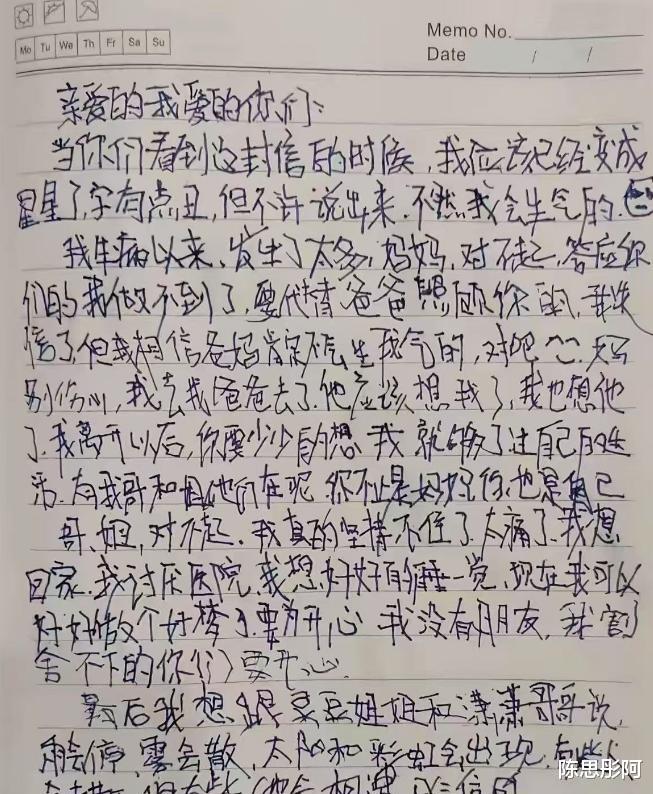 Memo No.
Mo Tu We Th Fr Sa Su
Date / /
亲爱的我爱的你们:
当你们看到这封信的时候,我应该已经变成
星星了,字有点丑,但不许说出来.不然我会生气的.
我生病以来,发生了太多,妈妈,对不起,答应你
们的我做不到了,要代替爸爸照顾你的,我失
信了,但我相信爸妈肯定不会生我气的,对吧^^.妈妈
别伤心,我去找爸爸去了.他应该想我了,我也想他
了.我离开以后,你要少少的想我就够了过自己的生
活.有我哥和姐他们在呢.你不止是妈妈你也是自己
哥、姐,对不起.我真的坚持不住了.太痛了.我想
回家.我讨厌医院.我想好好的睡一觉.现在我可以
好好做个好梦了.要为开心 我没有朋友,我割
舍不下的你们要开心.
最后我想跟豆豆姐姐和潇潇哥哥说,
雨会停,雾会散,太阳和彩虹会出现.有些人
陈思彤阿